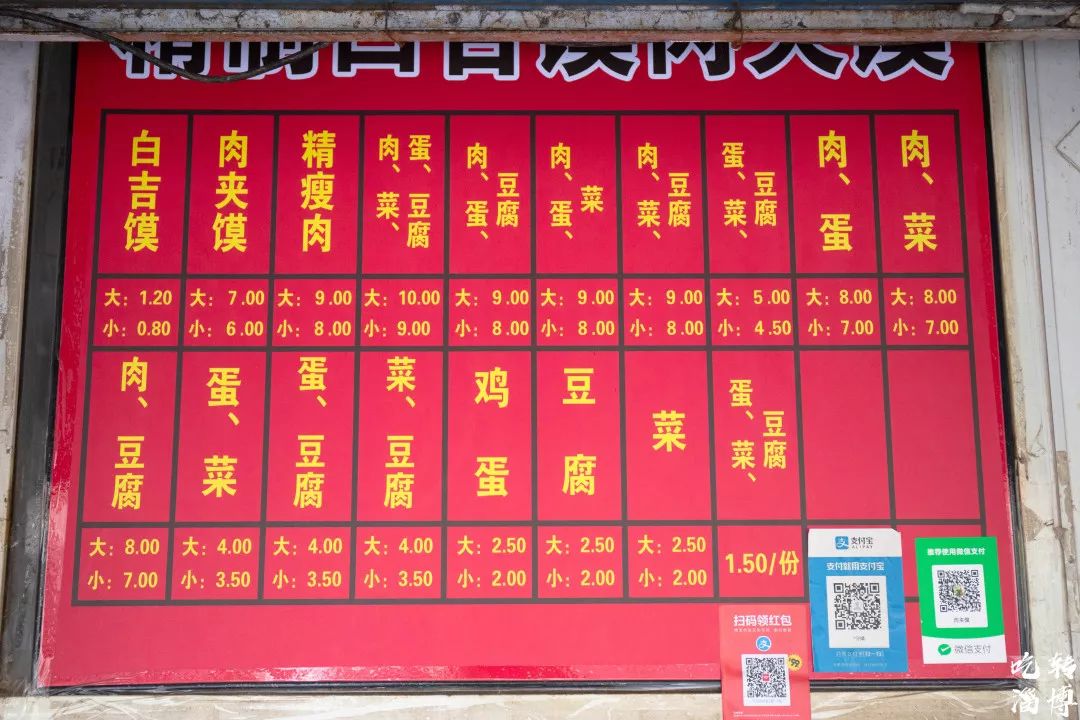 精制白吉馍肉夹馍
白吉馍
大：1.20
小：0.80
肉夹馍
大：7.00
小：6.00
精瘦肉
大：9.00
小：8.00
肉、菜、
蛋、豆腐
大：10.00
小：9.00
肉、蛋、
豆腐
大：9.00
小：8.00
肉、蛋、
菜
大：9.00
小：8.00
肉、菜、
豆腐
大：9.00
小：8.00
蛋、菜、
豆腐
大：5.00
小：4.50
肉、蛋
大：8.00
小：7.00
肉、菜
大：8.00
小：7.00
肉、豆腐
大：8.00
小：7.00
蛋、菜
大：4.00
小：3.50
蛋、豆腐
大：4.00
小：3.50
菜、豆腐
大：4.00
小：3.50
鸡蛋
大：2.50
小：2.00
豆腐
大：2.50
小：2.00
菜
大：2.50
小：2.00
蛋、菜、
豆腐
1.50/份
扫码领红包
支付宝
ALIPAY
支付就用支付宝
推荐使用微信支付
微信支付
吃转
淄博